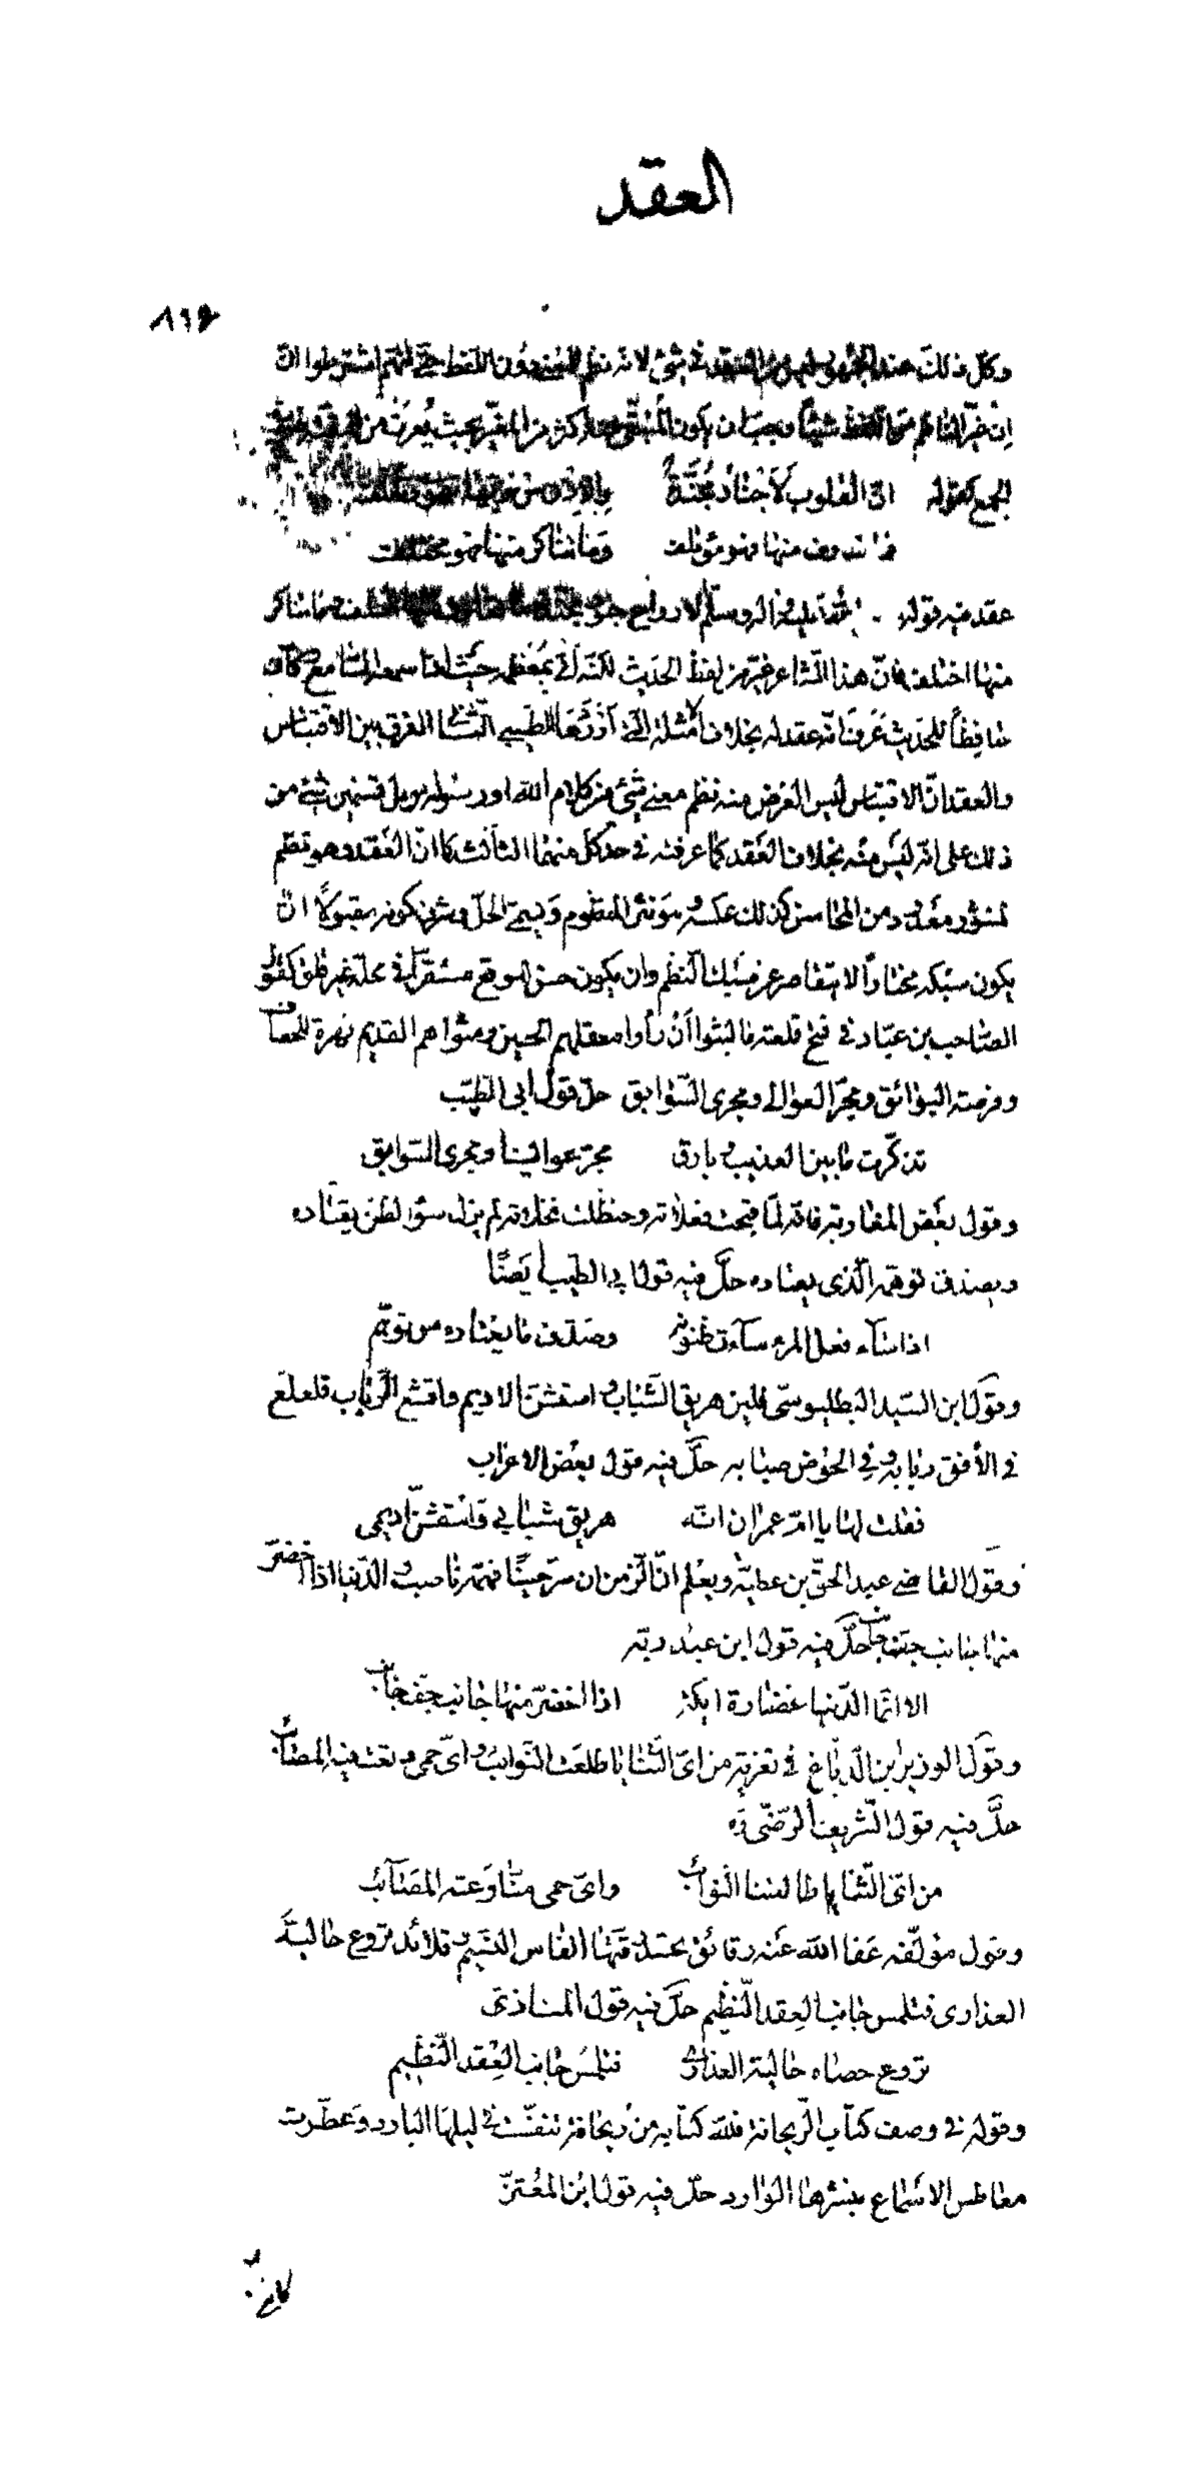 العقد
وكل ذلك عند الجمهور ليس من العقد في شئ لانه نظم المعنى دون اللفظ حتى انهم اشترطوا انّ
اِن غيّر الناظم من اللفظ شيئًا وجب ان يكون المُبَقّى اكثر من المغيّر بحيث يُعرف من
الجمع كقوله انّ القلوب لَاَجْنادٌ مُجَنَّدَةٌ بالاِذن من ربّها
فما تعارف منها فهو مؤتلف وَما تناكر منها فهو مختلف
عقد فيه قوله صلى الله عليه واله وسلّم الارواح جنود مجنّدة وما تناكر
منها اختلف فانّ هذا الشاعر غيّر من لفظ الحديث لكنّه اتى بمُعظمه حيث اذا سمعه السّامع وكان
حافِظاً للحَديث عَرف انّه عقد له بخلاف الامثلة الّتى اَوْرَدَهَا الطّيبي الثّانى الفرق بين الاقتباس
والعقد انّ الاقتباس ليس الغرض منه نظم معنى شئ من كلام الله او رسوله بل تضمين شئ من
ذلك على انّه ليَس منه بخلاف العَقد كما عرفته في حدّ كل منهما الثالث كما انّ العَقد وهو نظم
المنثور معدود من المحاسن كذلك عكسه وهو نثر المنظوم وَيسمّى الحلّ وشرط كونه مقبولاً انّ
يكون سبكه مختاراً لا يتقاصر عن سَبك النّظم وان يكون حسن الموقع مستقرّاً في محلّه غير قلق كقول
الصّاحب بن عبّاد في فتح قلعة فما لبثوا اَن رأوا معقلهم الحصين ومثواهم القديم نهزة للحوادث
وفرصة البوائق ومجرّ العوالى ومجرى السّوابق حلّ قول ابى الطّيّب
تذكّرت ما بين العذيب وبارق مجرّ عوالينا ومجرى السّوابق
وقول بعَض المغاربة فانّه لمّا قبحت فعلاته وحنظلت نخلاته لم يزل سوء الظن يقتاده
ويصدق توهّمه الّذى يعتاده حلَّ فيه قول ابي الطّيب ايَضًا
اذا سآء فعل المرء سآءت ظنونه وصدّق ما يعتاده من توهّم
وقول ابن السّيد البطليوسّى لمن هريق الشّباب واستشنّ الاديم واقشع الرّباب قلعلع
في الأفق ربابه وفى الحوَض صبابه حلَّ فيه قول بعض الاعراب
فقلت لها يا امّ عمران انّه هريق شبابي واستشنّ اديمى
وقول القاضى عبد الحقّ بن عطيّة ويعلم انّ الزّمن ان سرّ حينًا فهمّه ناصب والدّنيا اذا اخضرّ
منها جانب جفّ جانب حلَّ فيه قول ابن عبد ربّه
الا انّما الدّنيا غضارة ايكة اذا اخضرّ منها جانب جفّ جانب
وقول الوزير ابن الدّبّاغ في تعزية من اىّ الثّنايا طلعَت النّوايب واىّ حمى رتعت فيه المصائب
حلَّ فيه قول الشّريف الرّضّى ره
من اىّ الثّنايا طالعتنا النّوائب واىّ حمى منّا رَعته المصَآئبُ
وقول مؤلّفه عَفا الله عَنه رقائق تحسد رقّتها انفاس النّسيم وقلائد تروع حالية
العذارى فتلمس جانب العِقد النّظيم حلَّ فيه قول المنازى
تروع حصاه حالية العذارى فتلمسُ جانب العقد النّظيم
وقوله في وصف كتاب الرّيحانة فللّه كتابه من ريحانة تنفّست في ليلها البارد وَعطّرت
معاطس الاسَماع بنشرها الوارد حلَّ فيه قول ابن المُعتزّ